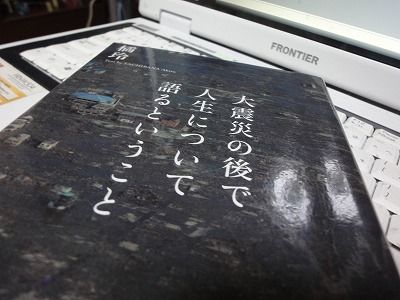 FRONTIER
大震災の後で
人生について
語るということ
橘 玲
Text by TACHIBANA Akira